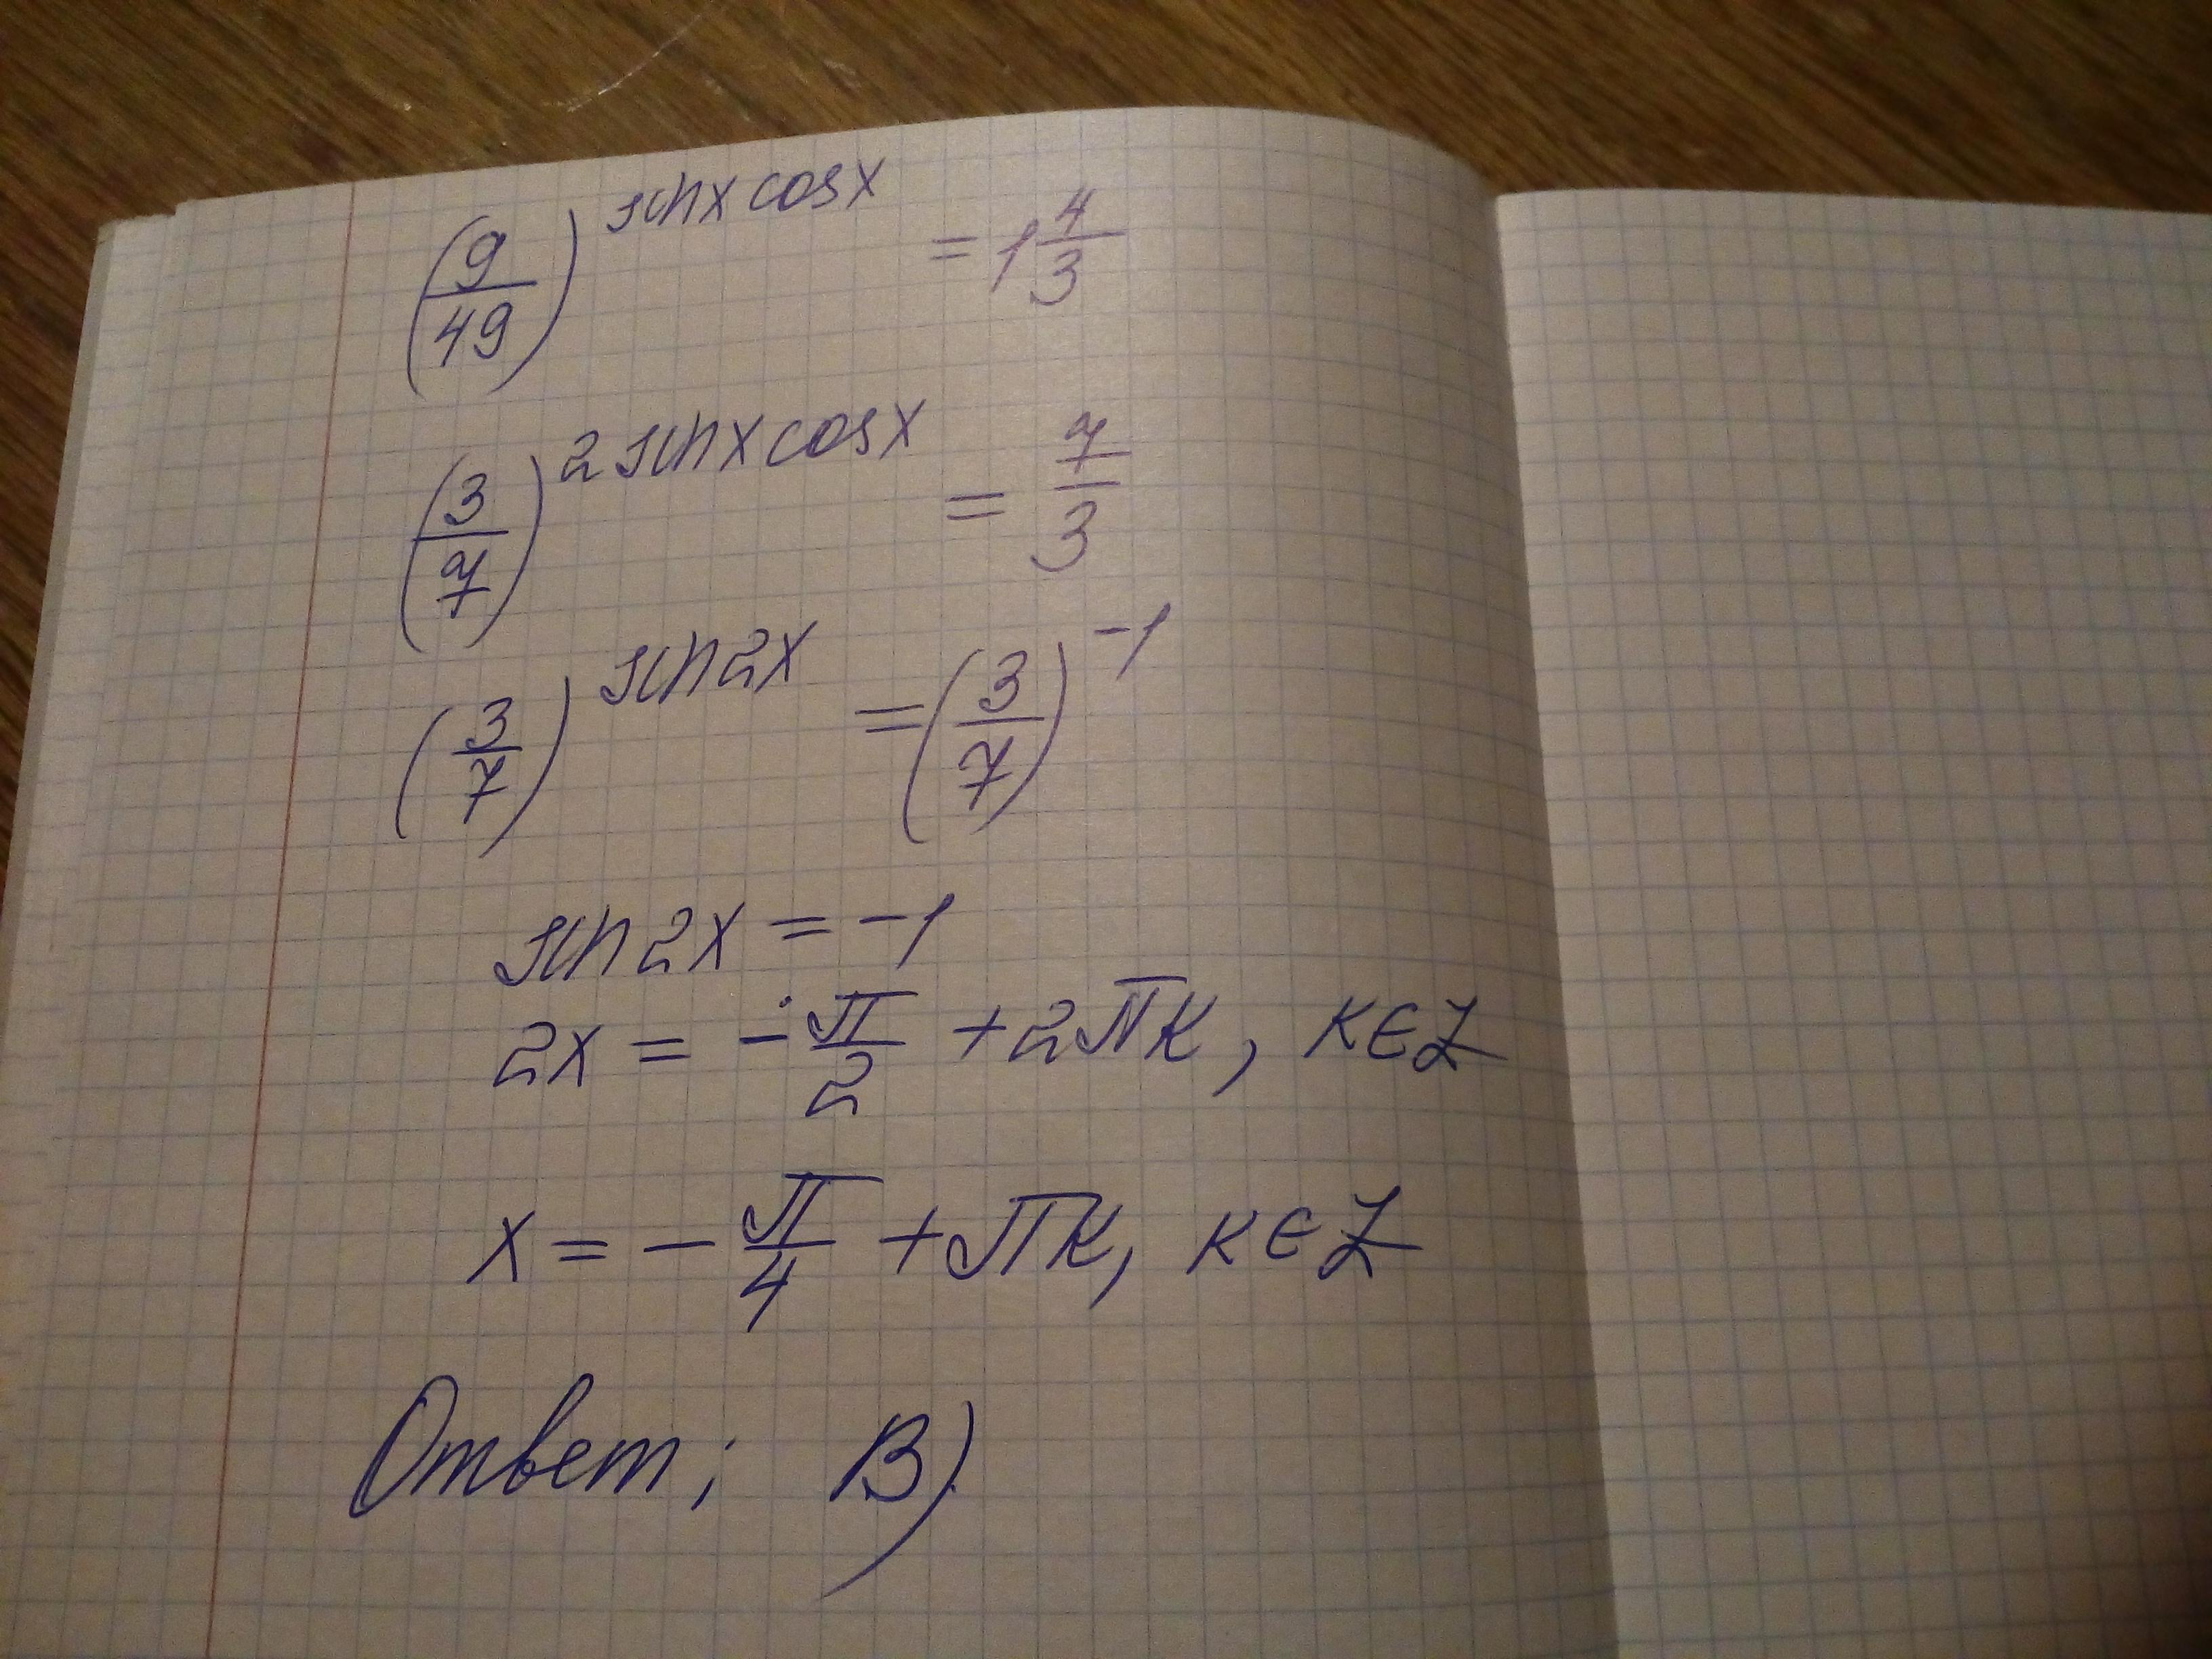 (9/49)^sinx cosx = 1 4/3
(3/7)^2 sinx cosx = 7/3
(3/7)^sin2x = (3/7)^-1
sin2x = -1
2x = -π/2 + 2πк, к∈Z
x = -π/4 + πк, к∈Z
Ответ: В)